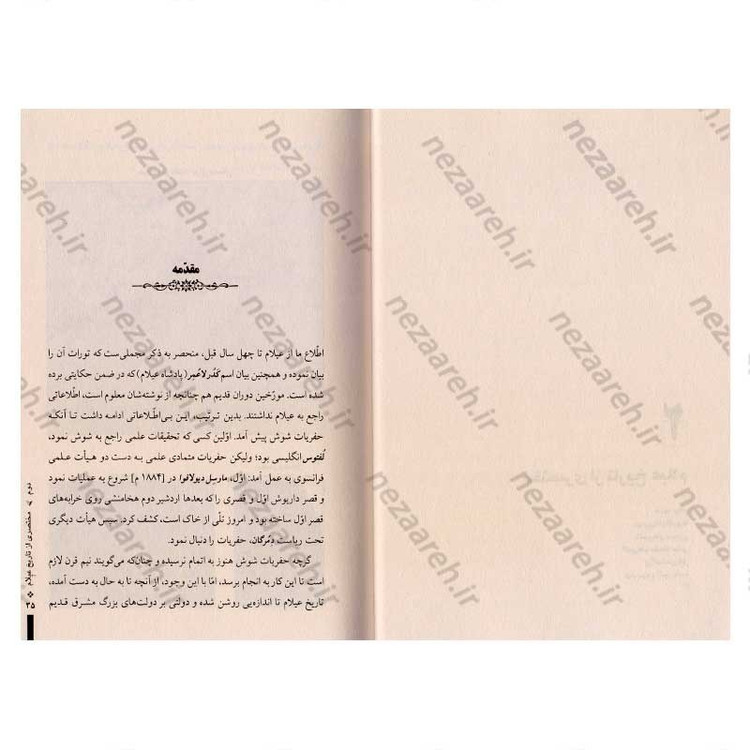 مقدّمه
اطّلاع ما از عیلام تا چهل سال قبل، منحصر به ذکر مجملی‌ست که تورات آن را
بیان نموده و همچنین بیان اسم کَدُرلاعُمِر (پادشاه عیلام) که در ضمن حکایتی برده
شده است. مورّخین دوران قدیم هم چنانچه از نوشته‌شان معلوم است، اطّلاعاتی
راجع به عیلام نداشتند. بدین ترتیب، این بی‌اطّلاعاتی ادامه داشت تا آنکه
حفریات شوش پیش آمد. اوّلین کسی که تحقیقات علمی راجع به شوش نمود،
لُفتوس انگلیسی بود؛ ولیکن حفریات متمادی علمی به دست دو هیأت علمی
فرانسوی به عمل آمد: اوّل، مارسل دیولافوا در [۱۸۸۴ م] شروع به عملیات نمود
و قصر داریوش اوّل و قصری را که بعدها اردشیر دوم هخامنشی روی خرابه‌های
قصر اوّل ساخته بود و امروز تلّی از خاک است، کشف کرد. سپس هیأت دیگری
تحت ریاست دمُرگان، حفریات را دنبال نمود.
گرچه حفریات شوش هنوز به اتمام نرسیده و چنان‌که می‌گویند نیم قرن لازم
است تا این کار به انجام برسد، امّا با این وجود، از آنچه تا به حال به دست آمده،
تاریخ عیلام تا اندازه‌یی روشن شده و دولتی بر دولت‌های بزرگ مشرق قدیم
دوم > مختصری از تاریخ عیلام ❖ ۳۵
nezaareh.ir
nezaareh.ir
nezaareh.ir
nezaareh.ir
nezaareh.ir
nezaareh.ir
nezaareh.ir
nezaareh.ir
nezaareh.ir
nezaareh.ir
nezaareh.ir
nezaareh.ir